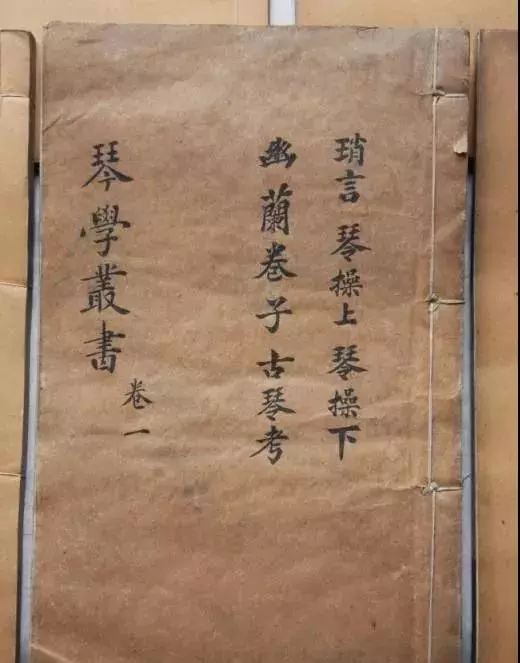 瑣言 琴操上 琴操下
幽蘭卷子 古琴考
琴學叢書
卷一